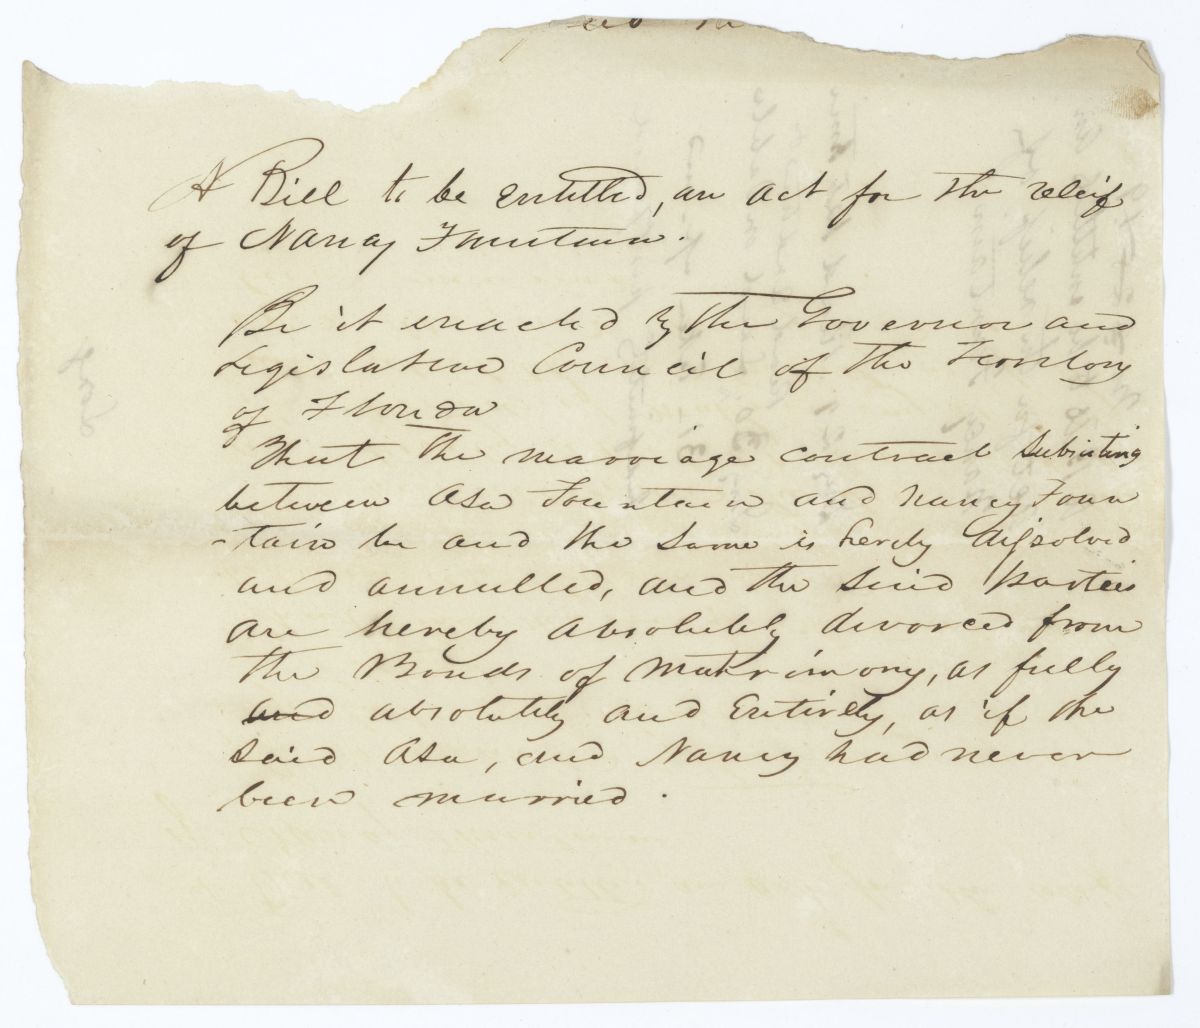 A Bill to be entitled, an act for the releif
of Nancy Fountain.
Be it enacted by the Governor and
Legislative Council of the Territory
of Florida
That the marriage contract subsisting
between Asa Fountain and Nancy Foun
-tain be and the same is hereby dissolved
and annulled, and the said parties
are hereby absolutely divorced from
the Bonds of matrimony, as fully
and absolutely and Entirely, as if the
said Asa, and Nancy had never
been married.